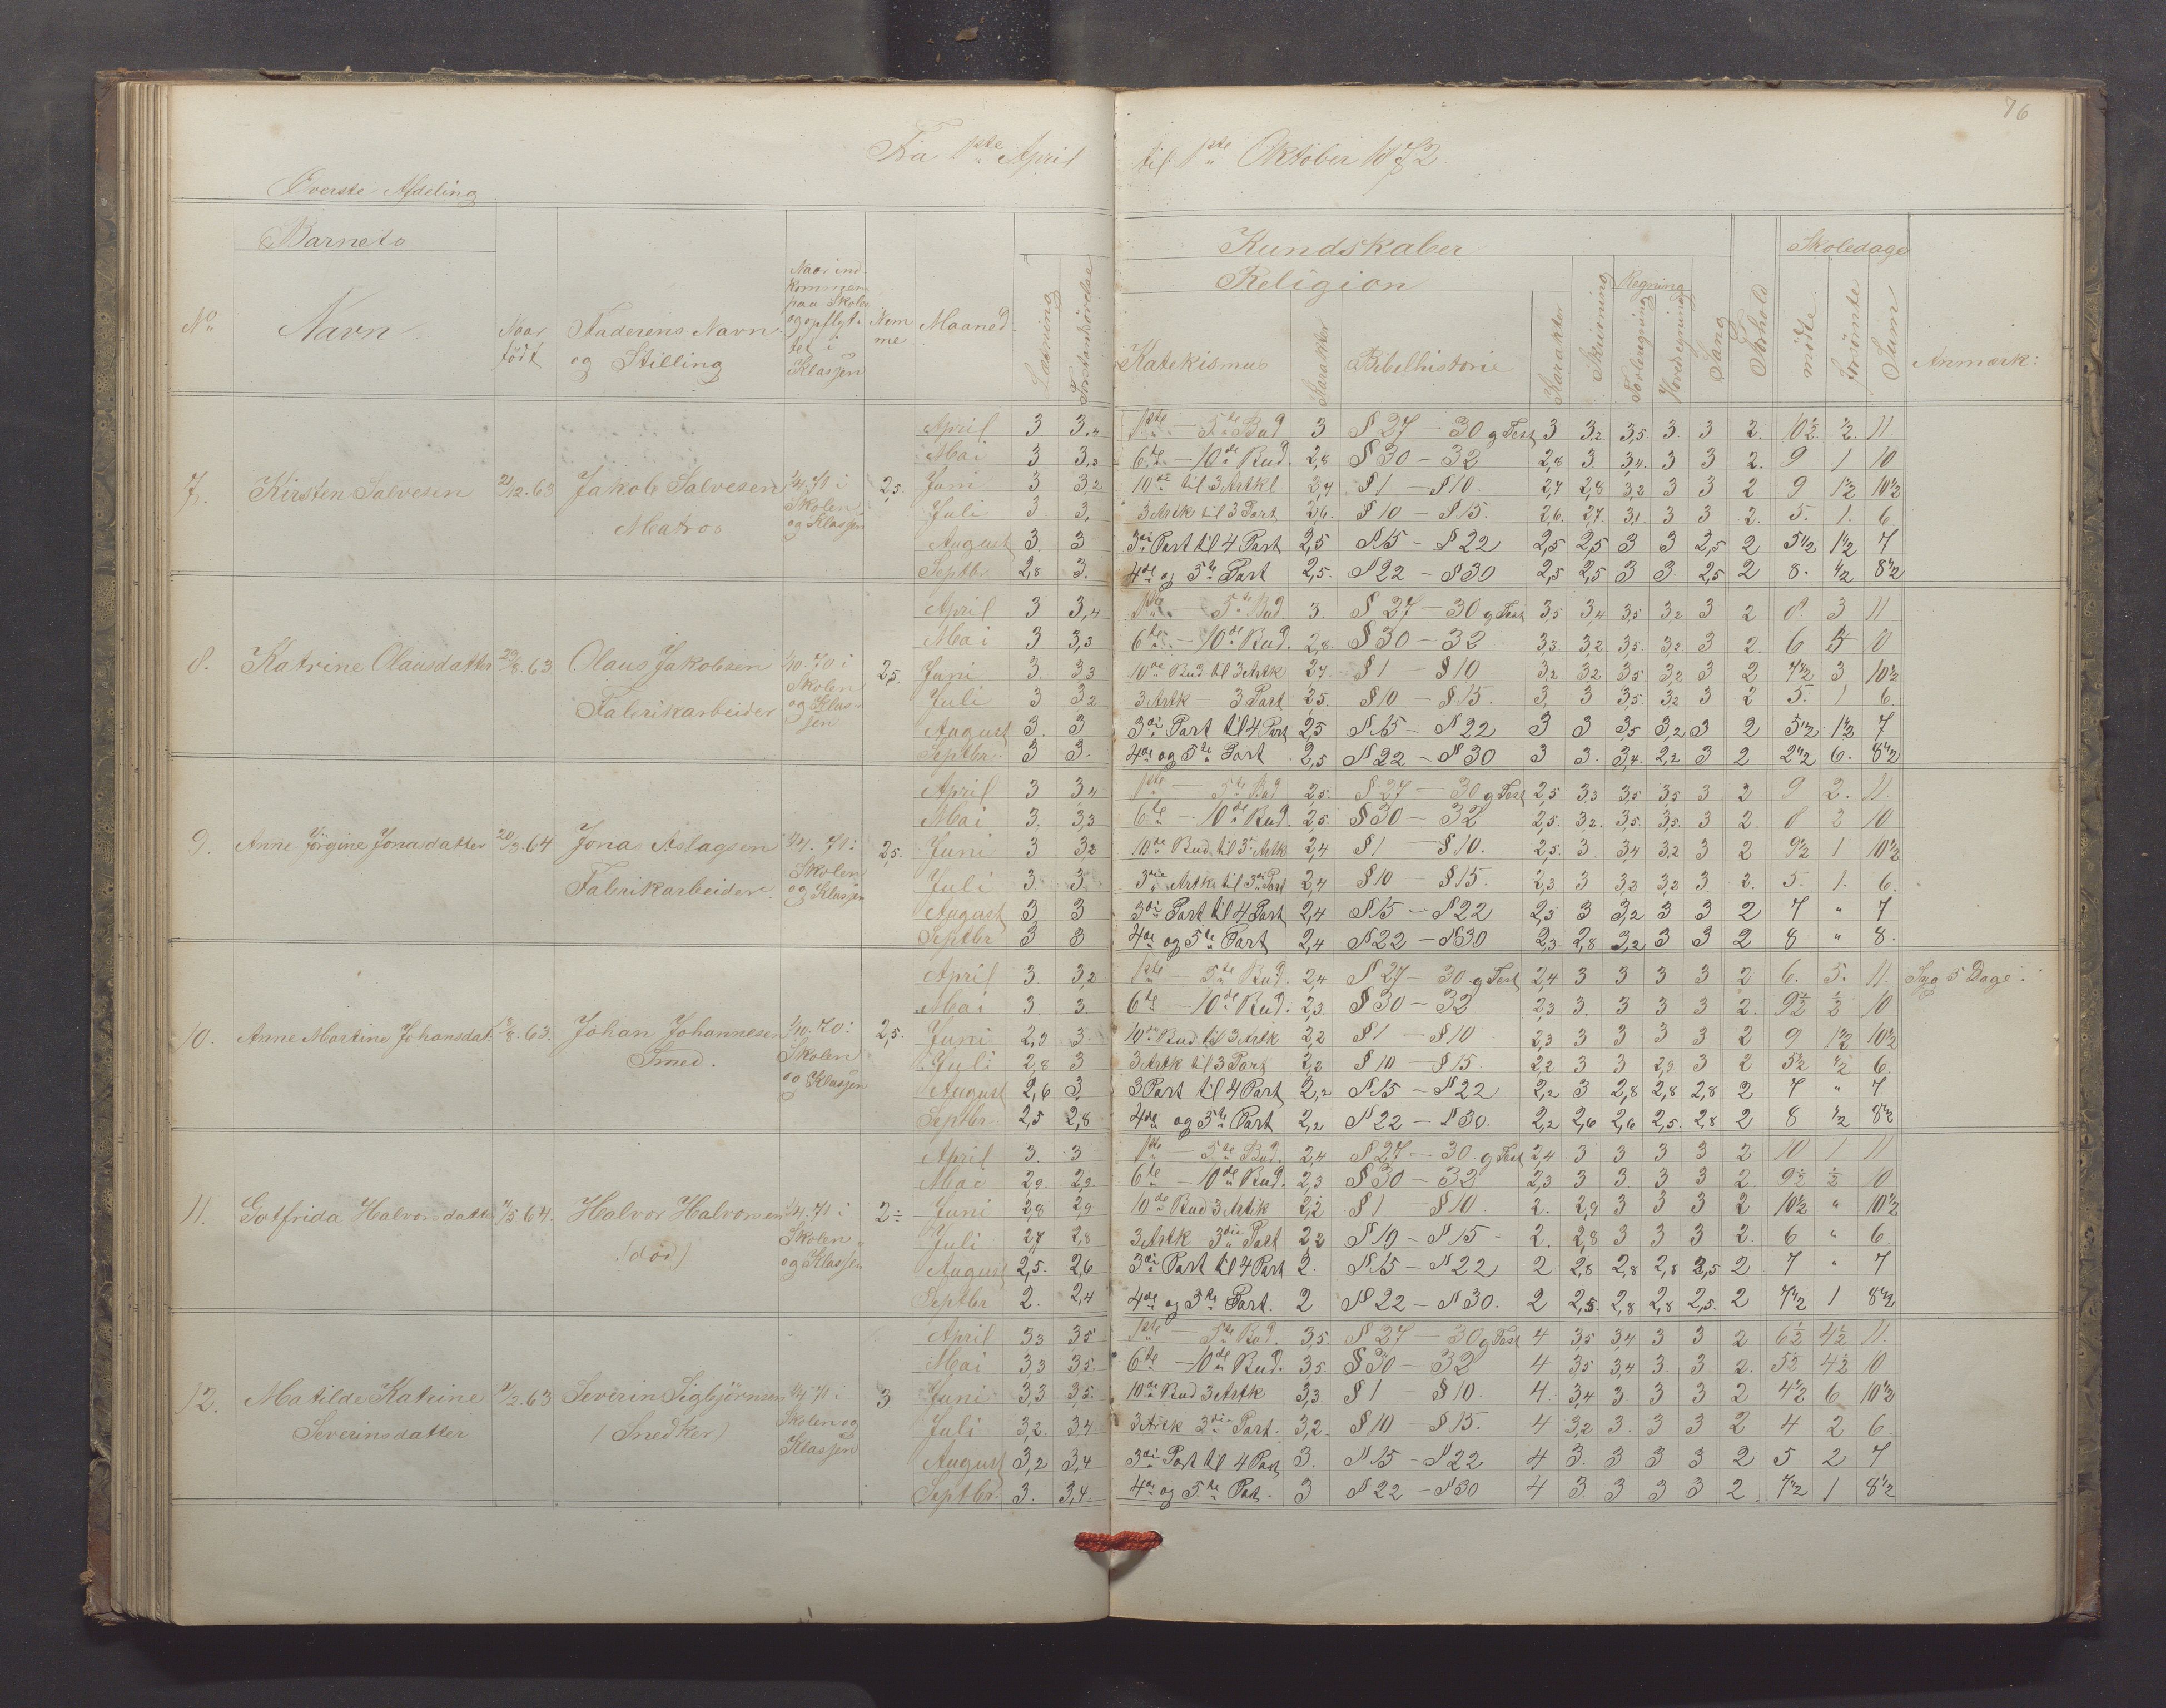 76
Fra 1ste April til 1ste Oktober 1872
Øverste Afdeling
Barnets
Kundskaber
Skoledage
Religion
Regning
No
Navn
Naar født
Faderens Navn og Stilling
Naar indkommen paa Skolen og opflyttet i Klassen
Nemme
Maaned
Læsning
Forstandsøvelse
Katekismus
Karakter
Bibelhistorie
Karakter
Skrivning
Tavleregning
Hovedregning
Sang
Forhold
mødte
forsømte
Sum
Anmærk:
7. Kirsten Salvesen 21/12.63 Jakob Salvesen Matros 1/4.71 i Skolen og Klassen 2,5
April 3 3,4 1ste - 5te Bud 3 § 27 - 30 g Test 3 3,2 3,5 3. 3 2. 10½ ½ 11
Mai 3 3,3 6te - 10de Bud. 2,8 § 30 - 32 2,8 3. 3,4. 3 3 2. 9 1 10
Juni 3 3,2 10de til 3 Artkl 2,7 § 1 - § 10. 2,7 2,8 3,2 3 3 2 9 1½ 10½
Juli 3. 3. 3 Artk til 3 Part 2,6. § 10 - § 15. 2,6. 2,7. 3,1. 3 3 2. 5. 1. 6.
August 3. 3 3die Part til 4 Part 2,5 § 15 - § 22 2,5 2,5 3 3 2,5 2 5½ 1½ 7
Septbr 2,8 3. 4de og 5te Part 2,5. § 22 - § 30 2,5 2,5 3 3. 2,5 2 8. ½ 8½
8. Katrine Olausdatter 29/8.63 Olaus Jakobsen Fabrikarbeider 1/10.70 i Skolen og Klassen 2,5.
April 3 3,4 1ste - 5te Bud 3. § 27 - 30 g Test 3,5 3,4 3,5 3,2 3 2 8. 3 11
Mai 3 3,3 6te - 10de Bud. 2,8. § 30 - 32 3,3 3,2 3,5 3,2 3 2. 6 4 10
Juni 3. 3,3 10de Bud til 3 Artk 2,7. § 1 § 10 3,2 3,2 3,5 3,2 3 2 7½ 3 10½
Juli 3 3,2 3 Artk - 3 Part 2,5. § 10 - § 15. 3, 3 3,5. 3,2 3 2 5. 1 6.
August 3. 3 3die Part til 4 Part 2,5 § 15 - § 22 3 3 3,5 3,2 3 2 5½ 1½ 7
Septbr. 3 3. 4de og 5te Part 2,5 § 22 - § 30 3 3. 3,4. 2,2 3 2 2½ 6. 8½
9. Anne Jörgine Jonasdatter 20/3.64 Jonas Aslagsen Fabrikarbeider. 1/4.71 i Skolen og Klassen 2,5.
April 3 3,4 1ste - 5te Bud 2,5. § 27 - 30 g Test 2,5 3,3 3,5 3,5 3 2 9 2. 11
Mai 3. 3,3 6te - 10de Bud. 2,5. § 30 - 32 2,5. 3,2. 3,5. 3,5. 3 2. 8 2 10
Juni 3 3,2 10de Bud til 3 Artk 2,4 § 1 - § 10. 2,5. 3. 3,4 3,2 3 2 9½ 1 10½
Juli 3. 3 3die Artk til 3die Part 2,4 § 10 - § 15. 2,3 3 3,2 3,2 3. 2. 5. 1. 6.
August 3 3 3die Part til 4 Part 2,4 § 15 - § 22 2,5 3 3,2 3 3 2 7 " 7
Septbr 3 3 4de og 5te Part 2,4 § 22 - § 30 2,3. 2,8 3,2 3 3 2 8 " 8.
10. Anne Martine Johansdat. /8.63. Johan Johannesen Smed. 1/10.70 i Skolen og Klassen 2,5.
April 3. 3,2 1ste - 5te Bud. 2,4 § 27 - 30 g Test 2,4 3 3 3 3 2 6. 5. 11. Syg 5 Dage.
Mai 3 3. 6te - 10de Bud. 2,3 § 30 - 32 2,3 3. 3 3 3 2. 9½ ½ 10
Juni 2,9 3. 10de Bud til 3 Artk 2,2 § 1 - § 10 2,3 3 3 3 3 2 9 1½ 10½
Juli 2,8 3 3 Artk til 3 Part 2,2 § 10 - § 15 2,2 3 3 2,9 3 2 5½ ½ 6.
August 2,6 3. 3 Part til 4 Part 2,2 § 15 - § 22 2,2 3 2,8 2,8 2,8 2 7 " 7
Septbr 2,5 2,8 4de og 5te Part 2,2 § 22 - § 30. 2,2 2,6 2,6 2,5. 2,8 2 8 ½ 8½
11. Gotfrida Halvorsdatter /5.64. Halvor Halvorsen (död) 1/4.71 i Skolen og Klassen 2÷
April 3. 3 1ste - 5te Bud. 2,4 § 27 - 30. g Test 2,4 3 3 3 3 2 10 1 11
Mai 2,9 2,9. 6te - 10de Bud. 2,3 § 30 - 32 2,3 3 3. 3 3 2. 9½ ½ 10
Juni 2,8 2,9 10de Bud 3 Artik 2,2 § 1 - § 10. 2. 2,9 3 3 3 2 10½ " 10½
Juli 2,7 2,8 3 Artk 3die Part 2,2 § 10 - § 15 - 2. 2,8 3 3 3 2. 6 " 6.
August 2,5. 2,6 3die Part til 4 Part 2. § 15 - § 22 2 2,8 2,8 2,8 2,5 2 7 " 7
Septbr 2. 2,4 4de og 5te Part. 2 § 22 - § 30. 2 2,5. 2,8 2,8 2,5. 2 7½ 1 8½
12. Matilde Katrine Severinsdatter /2.63 Severin Sigbjörnsen (Snedker) 1/4.71 i Skolen og Klassen 3
April 3,3 3,5 1ste - 5te Bud. 3,5. § 27 - 30 g Test 4 3,5 3,4 3 3 2 6½ 4½ 11.
Mai 3,3 3,5. 6te - 10de Bud. 3,5. § 30 - 32 4 3,5 3,4 3. 3 2. 5½ 4½ 10
Juni 3,3 3,5. 10de Bud 3 Artk 3,3 § 1 § 10. 4. 3,4 3 3 3 2 4½ 6 10½
Juli 3,2. 3,4 3 Artk 3die Part. 3,2. § 10 - § 15. 4 3,2 3. 3 3 2 4 2 6.
August 3,2 3,4 3die Part til 4 Part 3. § 15 - § 22 4 3. 3 3 3 2 5 2 7
Septbr. 3. 3,4. 4de og 5te Part. 3 § 22 - § 30 4 3. 3 3 3 2. 7½ 1 8½